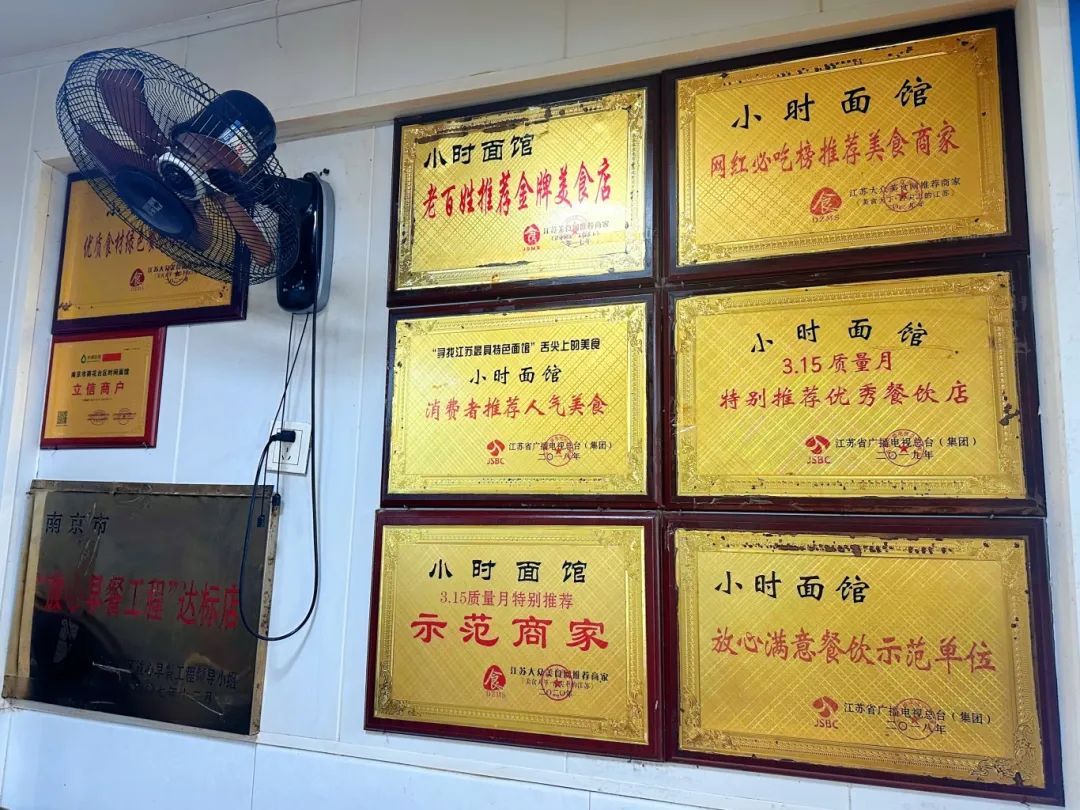 优质食材综艺
江苏大众美食网推荐
DZMS
南京市雨花台区时间面馆
立信商户
南京市
"放心早餐工程"达标店
放心早餐工程领导小组
小时面馆
老百姓推荐金牌美食店
江苏美食网推荐商家
JSMS
小时面馆
网红必吃榜推荐美食商家
江苏大众美食网推荐商家
DZMS
"寻找江苏最具特色面馆"舌尖上的美食
小时面馆
消费者推荐人气美食
江苏省广播电视总台(集团)
JSBC
二〇一八年
小时面馆
3.15质量月
特别推荐优秀餐饮店
江苏省广播电视总台(集团)
JSBC
二〇一九年
小时面馆
3.15质量月特别推荐
示范商家
江苏大众美食网推荐商家
DZMS
二〇二〇年
小时面馆
放心满意餐饮示范单位
江苏省广播电视总台(集团)
JSBC
二〇一八年